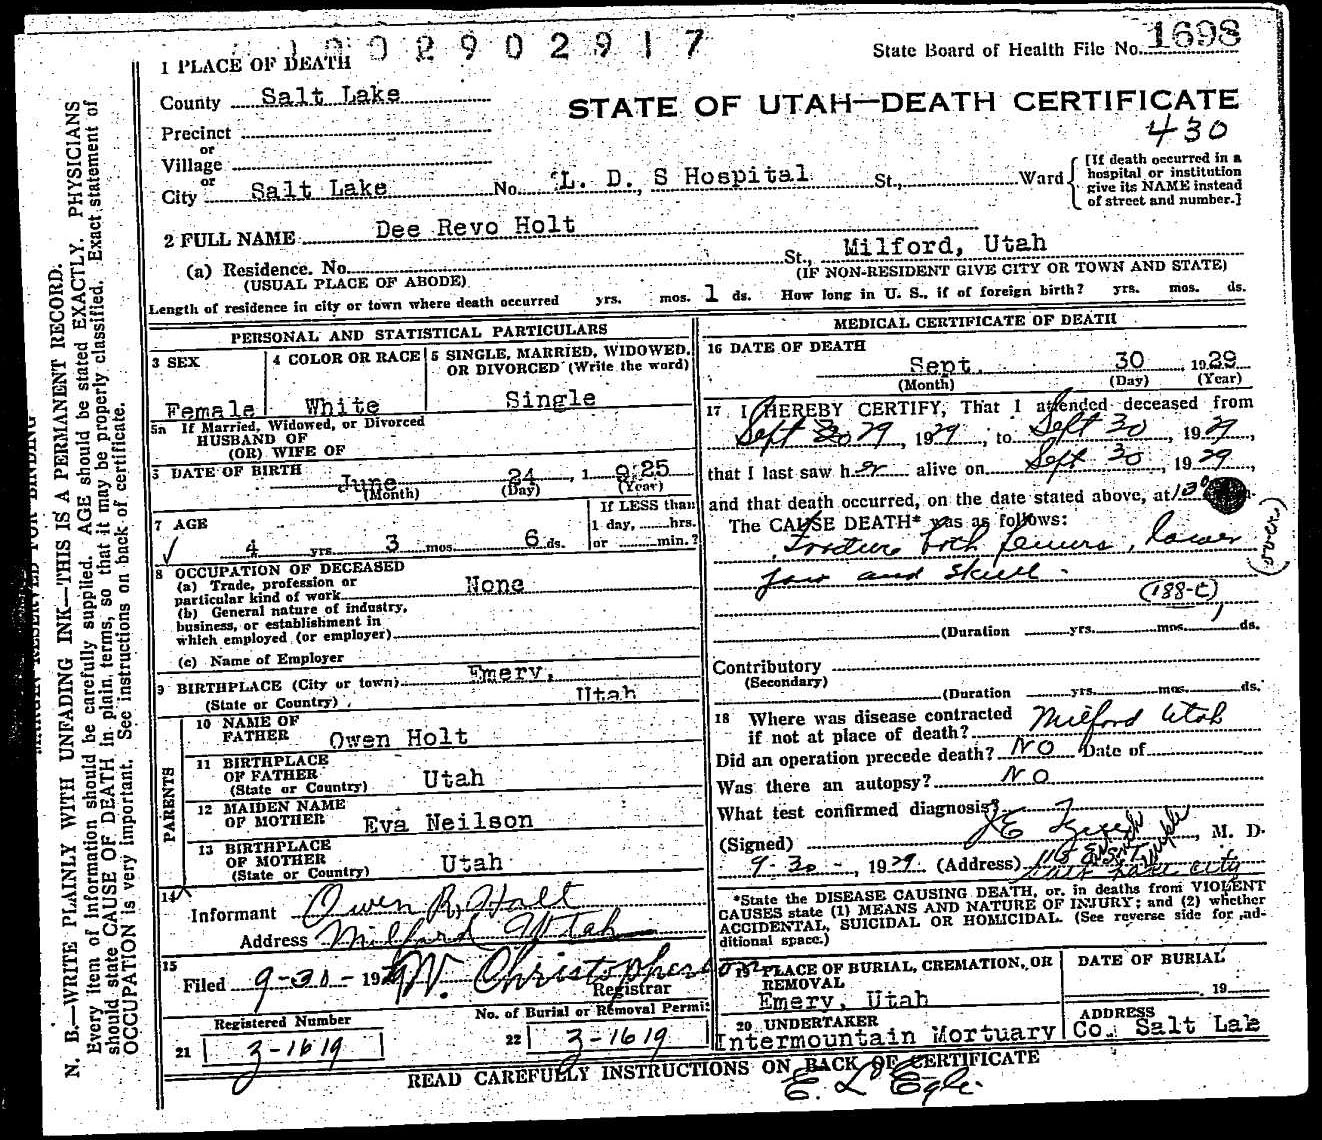 1002902917
State Board of Health File No. 1698
1 PLACE OF DEATH
County Salt Lake
STATE OF UTAH—DEATH CERTIFICATE
430
Precinct
or
Village
or
City Salt Lake No. L. D. S Hospital St., Ward
[If death occurred in a
hospital or institution
give its NAME instead
of street and number.]
2 FULL NAME Dee Revo Holt
(a) Residence. No. St., Milford, Utah
(USUAL PLACE OF ABODE) (IF NON-RESIDENT GIVE CITY OR TOWN AND STATE)
Length of residence in city or town where death occurred yrs. mos. 1 ds. How long in U. S., if of foreign birth? yrs. mos. ds.
PERSONAL AND STATISTICAL PARTICULARS
3 SEX
Female
4 COLOR OR RACE
White
5 SINGLE, MARRIED, WIDOWED,
OR DIVORCED (Write the word)
Single
5a If Married, Widowed, or Divorced
HUSBAND OF
(OR) WIFE OF
DATE OF BIRTH June 24, 1925
(Month) (Day) (Year)
7 AGE
4 yrs. 3 mos. 6 ds.
If LESS than
1 day, hrs.
or min.?
8 OCCUPATION OF DECEASED
(a) Trade, profession or
particular kind of work None
(b) General nature of industry,
business, or establishment in
which employed (or employer)
(c) Name of Employer
9 BIRTHPLACE (City or town) Emery,
(State or Country) Utah
PARENTS
10 NAME OF
FATHER Owen Holt
11 BIRTHPLACE
OF FATHER
(State or Country) Utah
12 MAIDEN NAME
OF MOTHER Eva Neilson
13 BIRTHPLACE
OF MOTHER
(State or Country) Utah
14
Informant Owen R. Holt
Address Milford Utah
15
Filed 9-30-1929 W. Christopherson
Registrar
Registered Number
21 3-1619
No. of Burial or Removal Permit
22 3-1619
MEDICAL CERTIFICATE OF DEATH
16 DATE OF DEATH
Sept. 30, 1929
(Month) (Day) (Year)
17 I HEREBY CERTIFY, That I attended deceased from
Sept 29, 1929, to Sept 30, 1929,
that I last saw her alive on Sept 30, 1929,
and that death occurred, on the date stated above, at 130 m.
The CAUSE DEATH* was as follows:
Fracture both femurs, lower
jaw and skull.
(188-c)
(Duration yrs. mos. ds.
Contributory
(Secondary)
(Duration yrs. mos. ds.
18 Where was disease contracted
if not at place of death? Milford Utah
Did an operation precede death? NO Date of
Was there an autopsy? NO
What test confirmed diagnosis?
(Signed) J E , M. D.
9-30-, 1929 (Address)
Salt Lake City
*State the DISEASE CAUSING DEATH, or, in deaths from VIOLENT
CAUSES state (1) MEANS AND NATURE OF INJURY; and (2) whether
ACCIDENTAL, SUICIDAL OR HOMICIDAL. (See reverse side for ad-
ditional space.)
19 PLACE OF BURIAL, CREMATION, OR
REMOVAL
Emery, Utah
DATE OF BURIAL
19
20 UNDERTAKER
Intermountain Mortuary
ADDRESS
Co. Salt Lake
READ CAREFULLY INSTRUCTIONS ON BACK OF CERTIFICATE
E. L
MARGIN RESERVED FOR BINDING
N. B.—WRITE PLAINLY WITH UNFADING INK—THIS IS A PERMANENT RECORD.
Every item of information should be carefully supplied. AGE should be stated EXACTLY. PHYSICIANS
should state CAUSE OF DEATH in plain terms, so that it may be properly classified. Exact statement of
OCCUPATION is very important. See instructions on back of certificate.